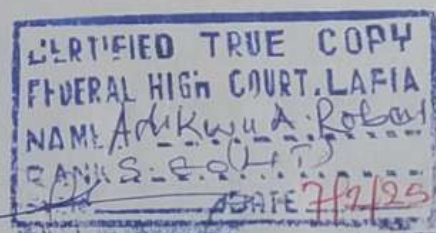 CERTIFIED TRUE COPY
FEDERAL HIGH COURT, LAFIA
NAME Adikwu A. Robert
RANK S.E.O (LIT)
DATE 7/2/25